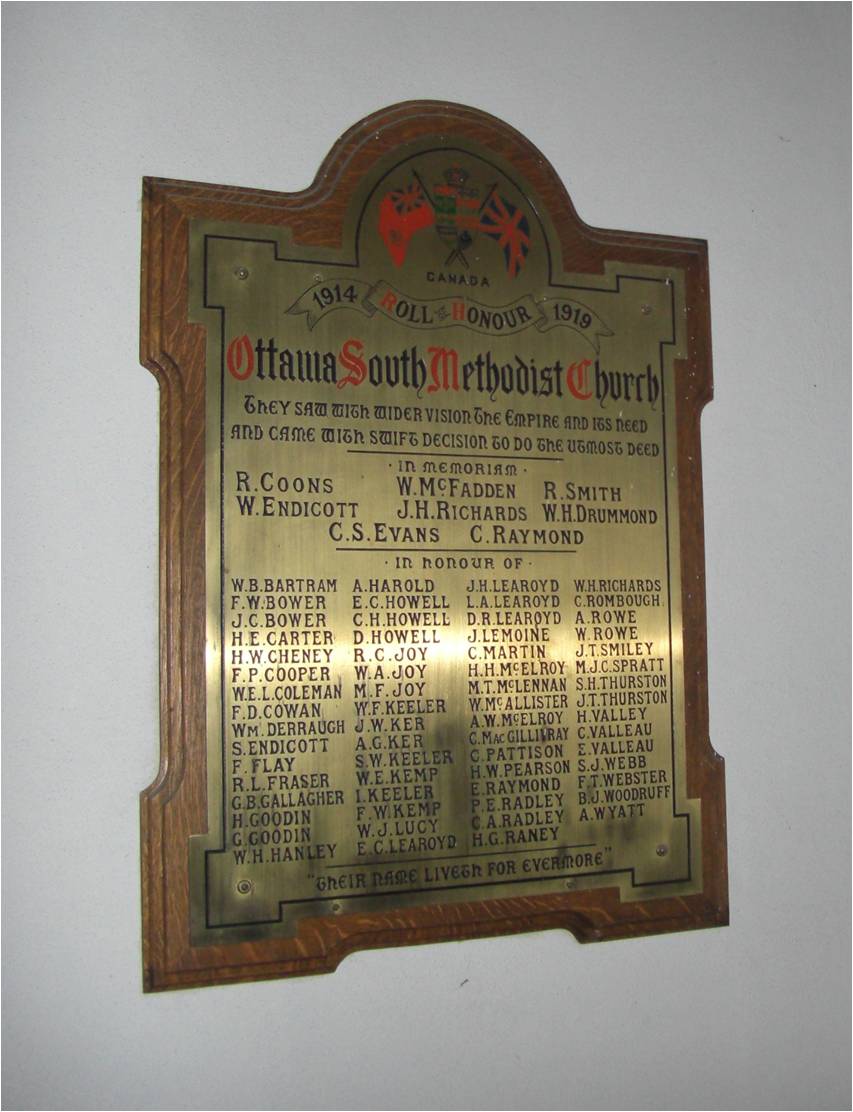 CANADA
1914 ROLL OF HONOUR 1919
Ottawa South Methodist Church
THEY SAW WITH WIDER VISION THE EMPIRE AND ITS NEED
AND CAME WITH SWIFT DECISION TO DO THE UTMOST DEED
· IN MEMORIAM ·
R. COONS W. McFADDEN R. SMITH
W. ENDICOTT J.H. RICHARDS W.H. DRUMMOND
C.S. EVANS C. RAYMOND
· IN HONOUR OF ·
W.B. BARTRAM
F.W. BOWER
J.C. BOWER
H.E. CARTER
H.W. CHENEY
F.P. COOPER
W.E.L. COLEMAN
F.D. COWAN
WM. DERRAUGH
S. ENDICOTT
F. FLAY
R.L. FRASER
G.B. GALLAGHER
H. GOODIN
G. GOODIN
W.H. HANLEY
A. HAROLD
E.C. HOWELL
C.H. HOWELL
D. HOWELL
R.C. JOY
W.A. JOY
M.F. JOY
W.F. KEELER
J.W. KER
A.G. KER
S.W. KEELER
W.E. KEMP
I. KEELER
F.W. KEMP
W.J. LUCY
E.C. LEAROYD
J.H. LEAROYD
L.A. LEAROYD
D.R. LEAROYD
J. LEMOINE
C. MARTIN
H.H. McELROY
M.T. McLENNAN
W. McALLISTER
A.W. McELROY
C. MacGILLIVRAY
C. PATTISON
H.W. PEARSON
E. RAYMOND
P.E. RADLEY
C.A. RADLEY
H.G. RANEY
W.H. RICHARDS
C. ROMBOUGH
A. ROWE
W. ROWE
J.T. SMILEY
M.J.C. SPRATT
S.H. THURSTON
J.T. THURSTON
H. VALLEY
C. VALLEAU
E. VALLEAU
S.J. WEBB
F.T. WEBSTER
B.J. WOODRUFF
A. WYATT
"THEIR NAME LIVETH FOR EVERMORE"